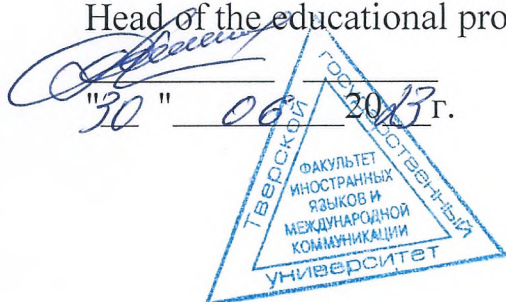 Head of the educational pro
"30 " 06 2023г.
Тверской государственный университет
ФАКУЛЬТЕТ
ИНОСТРАННЫХ
ЯЗЫКОВ И
МЕЖДУНАРОДНОЙ
КОММУНИКАЦИИ